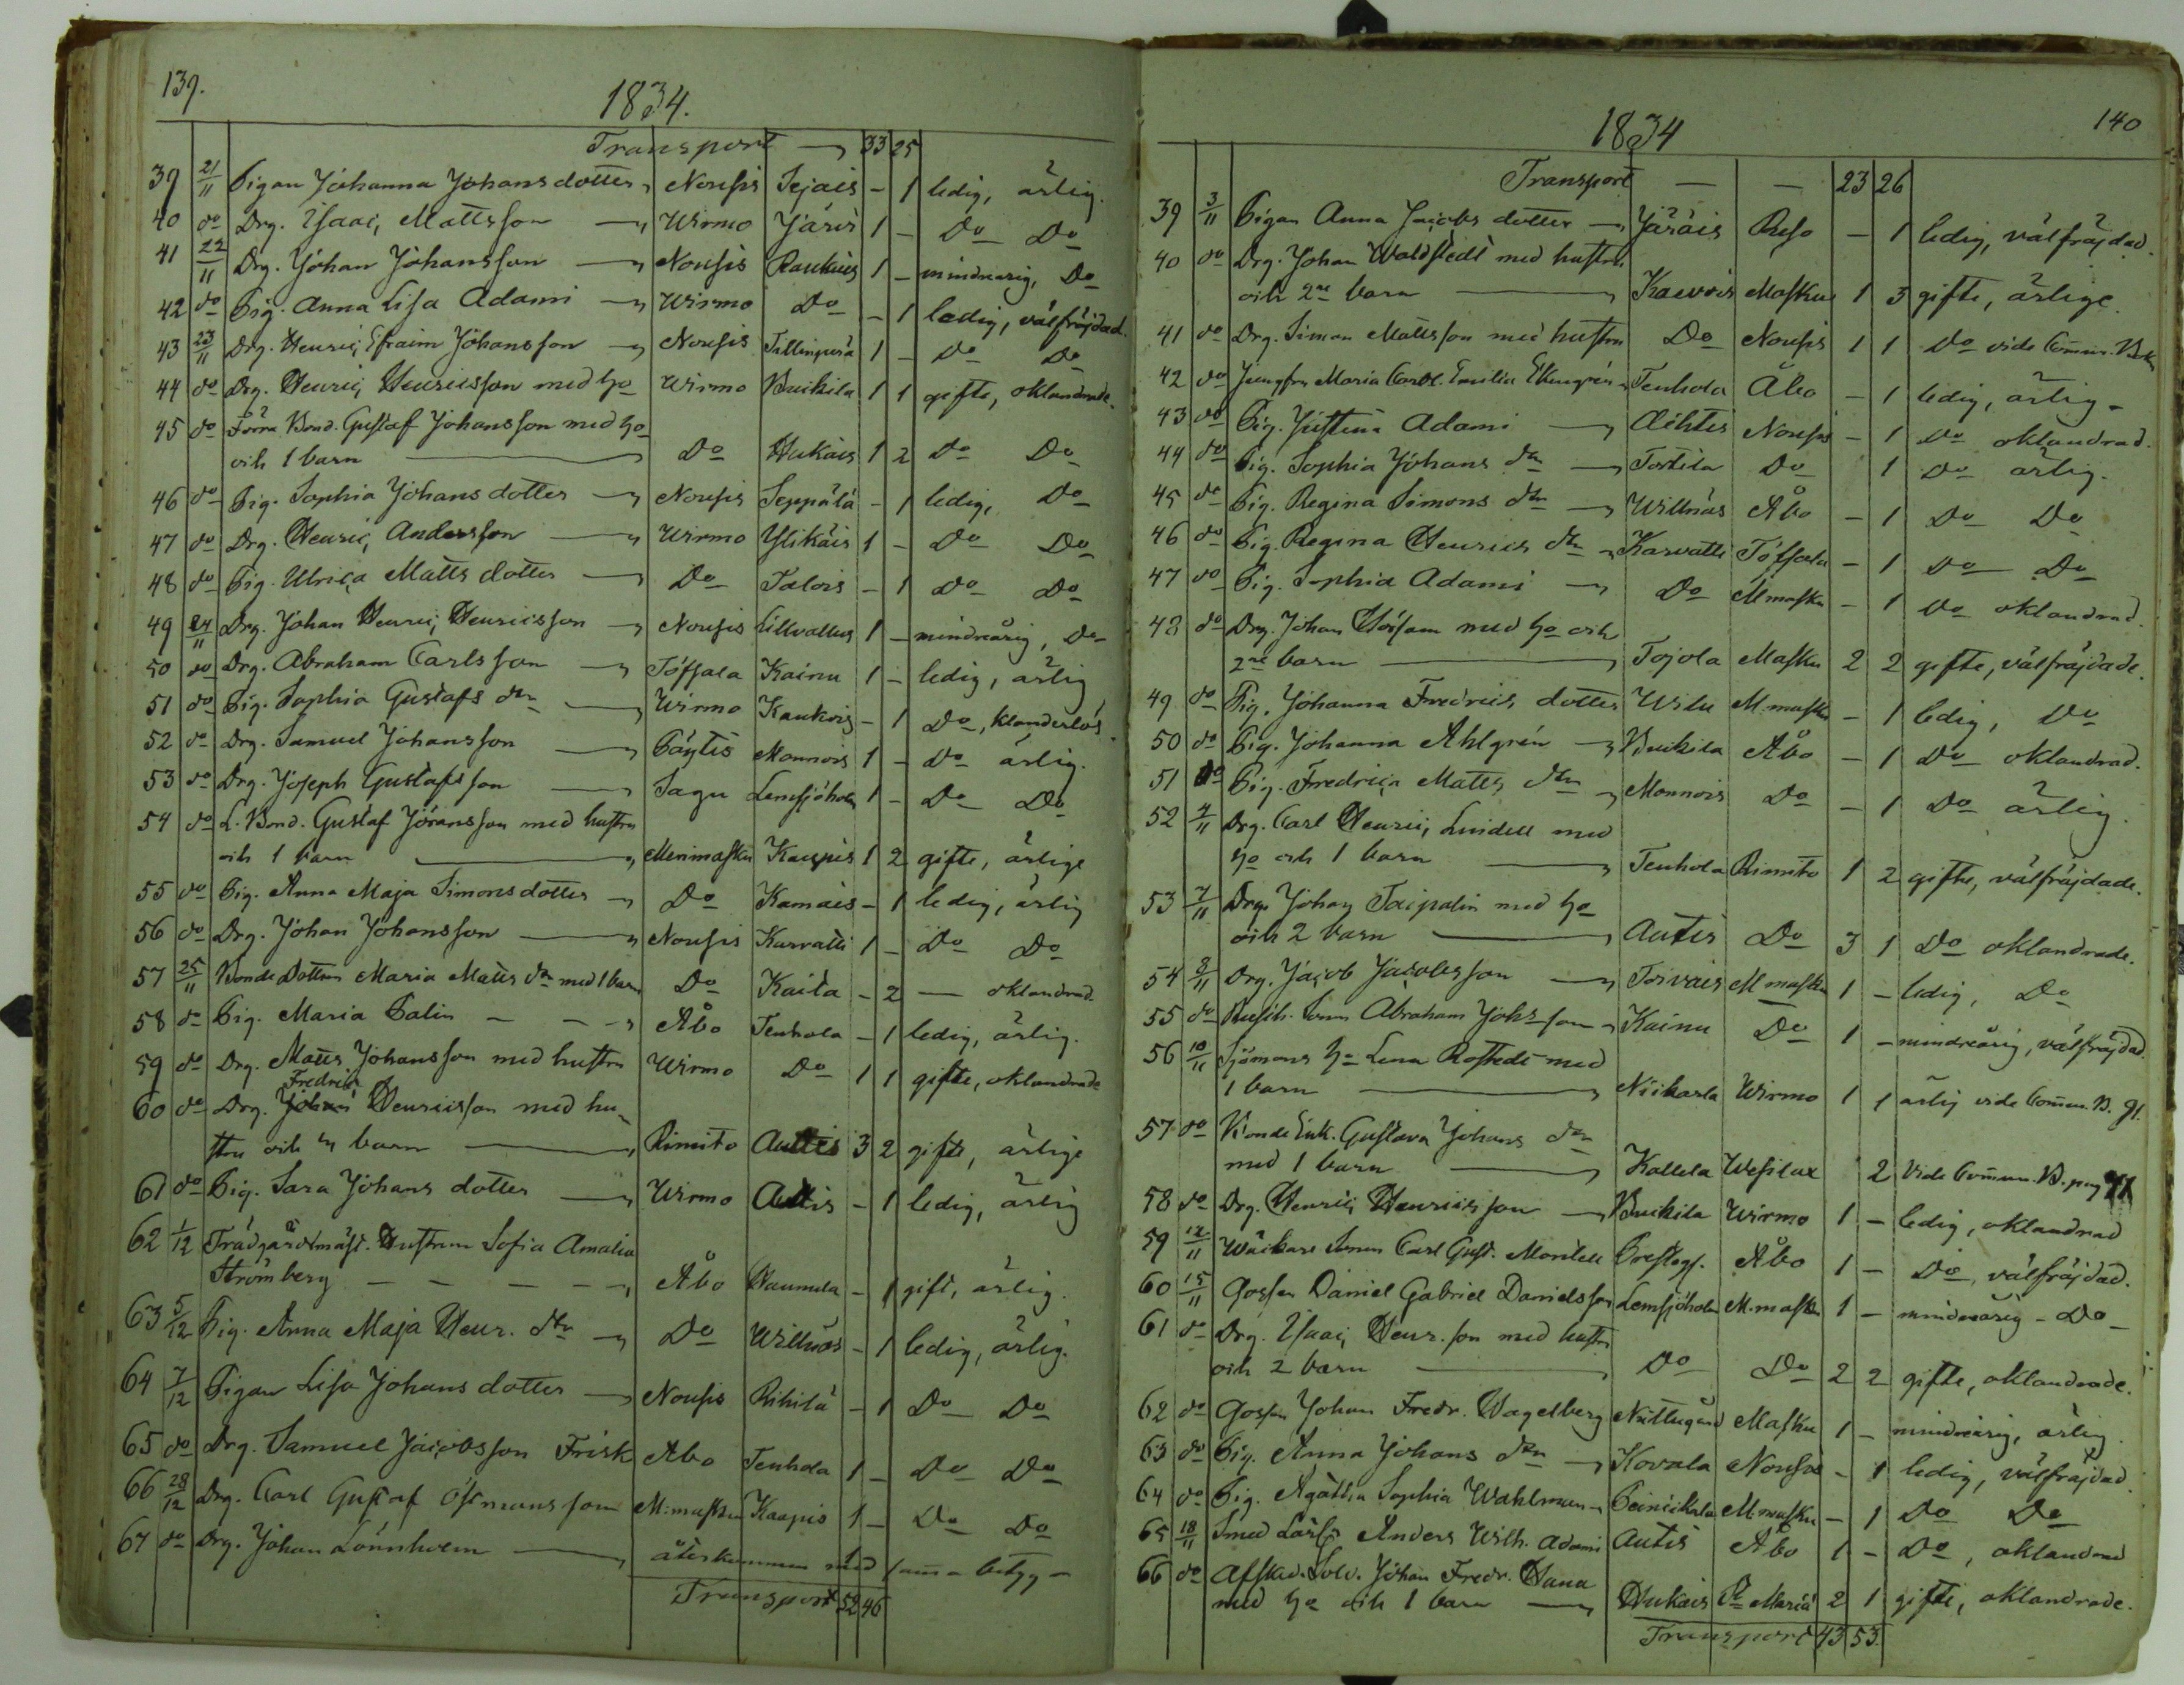 139.
1834.
Transport 33 25
39 21/11 Pigan Johanna Johansdotter Nousis Sejais - 1 ledig, ärlig.
40 do Drg. Isaac Mattsson Wirmo Järis 1 - Do Do
41 22/11 Drg. Johan Johansson Nousis Raukais 1 - mindreårig, Do
42 do Pig. Anna Lisa Adami Wirmo Do - 1 ledig, välfräjdad.
43 23/11 Drg. Henric Efraim Johansson Nousis 1 - Do Do
44 do Drg. Henric Henricsson med ho Wirmo Buikila 1 1 gifte, oklandrade.
45 do Förra Bond. Gustaf Johansson med ho
och 1 barn Do Hukais 1 2 Do Do
46 do Pig. Sophia Johansdotter Nousis Seppälä - 1 ledig, Do
47 do Drg. Henric Andersson Wirmo Ylikäis 1 - Do Do
48 do Pig. Ulrica Mattsdotter Do Talois - 1 Do Do
49 24/11 Drg. Johan Henric Henricsson Nousis 1 - mindreårig, Do
50 do Drg. Abraham Carlsson Töffsala Kainu 1 - ledig, ärlig
51 do Pig. Sophia Gustafs dtr Wirmo Kaukois - 1 Do, klanderlös.
52 do Drg. Samuel Johansson Pöytis Monnois 1 - Do ärlig.
53 do Drg. Joseph Gustafsson Sagu Lemsjöholm 1 - Do Do
54 do L. Bond. Gustaf Göransson med hustru
och 1 barn Merimasku Kaapis 1 2 gifte, ärlige
55 do Pig. Anna Maja Simonsdotter Do Kamais - 1 ledig, ärlig
56 do Drg. Johan Johansson Nousis Karvatti 1 - Do Do
57 25/11 Bonde Dottren Maria Matts dtr med 1 barn Do Kaita - 2 - oklandrad.
58 do Pig. Maria Palin Åbo Tenhola - 1 ledig, ärlig.
59 do Drg. Matts Johansson med hustru Wirmo Do 1 1 gifte, oklandrade
Fredric
60 do Drg. Johan Henricsson med hu-
stru och 4 barn Rimito Auttis 3 2 gifte, ärlige
61 do Pig. Sara Johans dotter Wirmo Autis - 1 ledig, ärlig
62 1/12 Trädgårdsmäst. Hustrun Sofia Amalia
Strömberg Åbo Haumila - 1 gift, ärlig.
63 5/12 Pig. Anna Maja Henr. dtr Do Willnäs - 1 ledig, ärlig.
64 7/12 Pigan Lisa Johans dotter Nousis Rihilä - 1 Do Do
65 do Drg. Samuel Jacobsson Frisk Åbo Tenhola 1 - Do Do
66 28/12 Drg. Carl Gustaf Östmansson M:masku Kaapis 1 - Do Do
67 do Drg. Johan Lönnholm återkommen med samma betyg 1
Transport 52 46
140
1834
Transport - - 23 26
39 3/11 Pigan Anna Jacobs dotter Järäis Reso - 1 ledig, välfräjdad.
40 do Drg. Johan Waldstedt med hustru
och 2ne barn Kaevois Masku 1 3 gifte, ärlige.
41 do Drg. Simon Mattsson med hustru Do Nousis 1 1 Do vide Commun. Bok
42 do Jungfru Maria Carol. Emilia Tenhola Åbo - 1 ledig, ärlig -
43 do Pig. Justina Adami Aihtis Nousis - 1 Do oklandrad.
44 do Pig. Sophia Johans dtr Tortila Do 1 Do ärlig.
45 do Pig. Regina Simons dtr Willnäs Åbo - 1 Do Do
46 do Pig. Regina Henrics dtr Karvatti Töffsala - 1 Do Do
47 do Pig. Sophia Adami Do M:masku - 1 Do oklandrad.
48 do Drg. Johan med ho och
2ne barn Tojola Masku 2 2 gifte, välfräjdade.
49 do Pig. Johanna Fredrics dotter Wilu M:masku - 1 ledig, Do
50 do Pig. Johanna Ahlgrén Buikila Åbo - 1 Do oklandrad.
51 do Pig. Fredrica Matts dtr Monnois Do - 1 Do ärlig.
52 4/11 Drg. Carl Henric Lindell med
ho och 1 barn Tenhola Rimito 1 2 gifte, välfräjdade.
53 7/11 Drg. Johan Taipalin med ho
och 2 barn Autis Do 3 1 Do oklandrade.
54 8/11 Drg. Jacob Jacobsson Torvais M:masku 1 - ledig, Do
55 do Rusth. Sonen Abraham Johsson Kainu Do 1 - mindreårig, välfräjdad.
56 10/11 Sjömans ho Lena Rostedt med
1 barn Niikarla Wirmo 1 1 ärlig vide Commun. B.
57 do Bonde Enk. Gustava Johans dtr
med 1 barn Kallela Wesilax 2 Vide Commun. B. pag
58 do Drg. Henric Henricsson Buikila Wirmo 1 - ledig, oklandrad
59 12/11 Carl Gust. Montell Prestg. Åbo 1 - Do, välfräjdad.
60 15/11 Gossen Daniel Gabriel Danielsson Lemsjöholm M:masku 1 - mindreårig - Do -
61 do Drg. Isaac Henr.son med hustru
och 2 barn Do Do 2 2 gifte, oklandrade.
62 do Gossen Johan Fredr. Wagelberg Masku 1 - mindreårig, ärlig.
63 do Pig. Anna Johans dtr Kovala Nousis - 1 ledig, välfräjdad.
64 do Pig. Agatha Sophia Wahlman M:masku - 1 Do Do
65 18/11 Smed Lärl. Anders Wilh. Adami Autis Åbo 1 - Do, oklandrad
66 do Afsked. Sold. Johan Fredr. Hana
med ho och 1 barn Hukais St Mariæ 2 1 gifte, oklandrade.
Transport 43 53